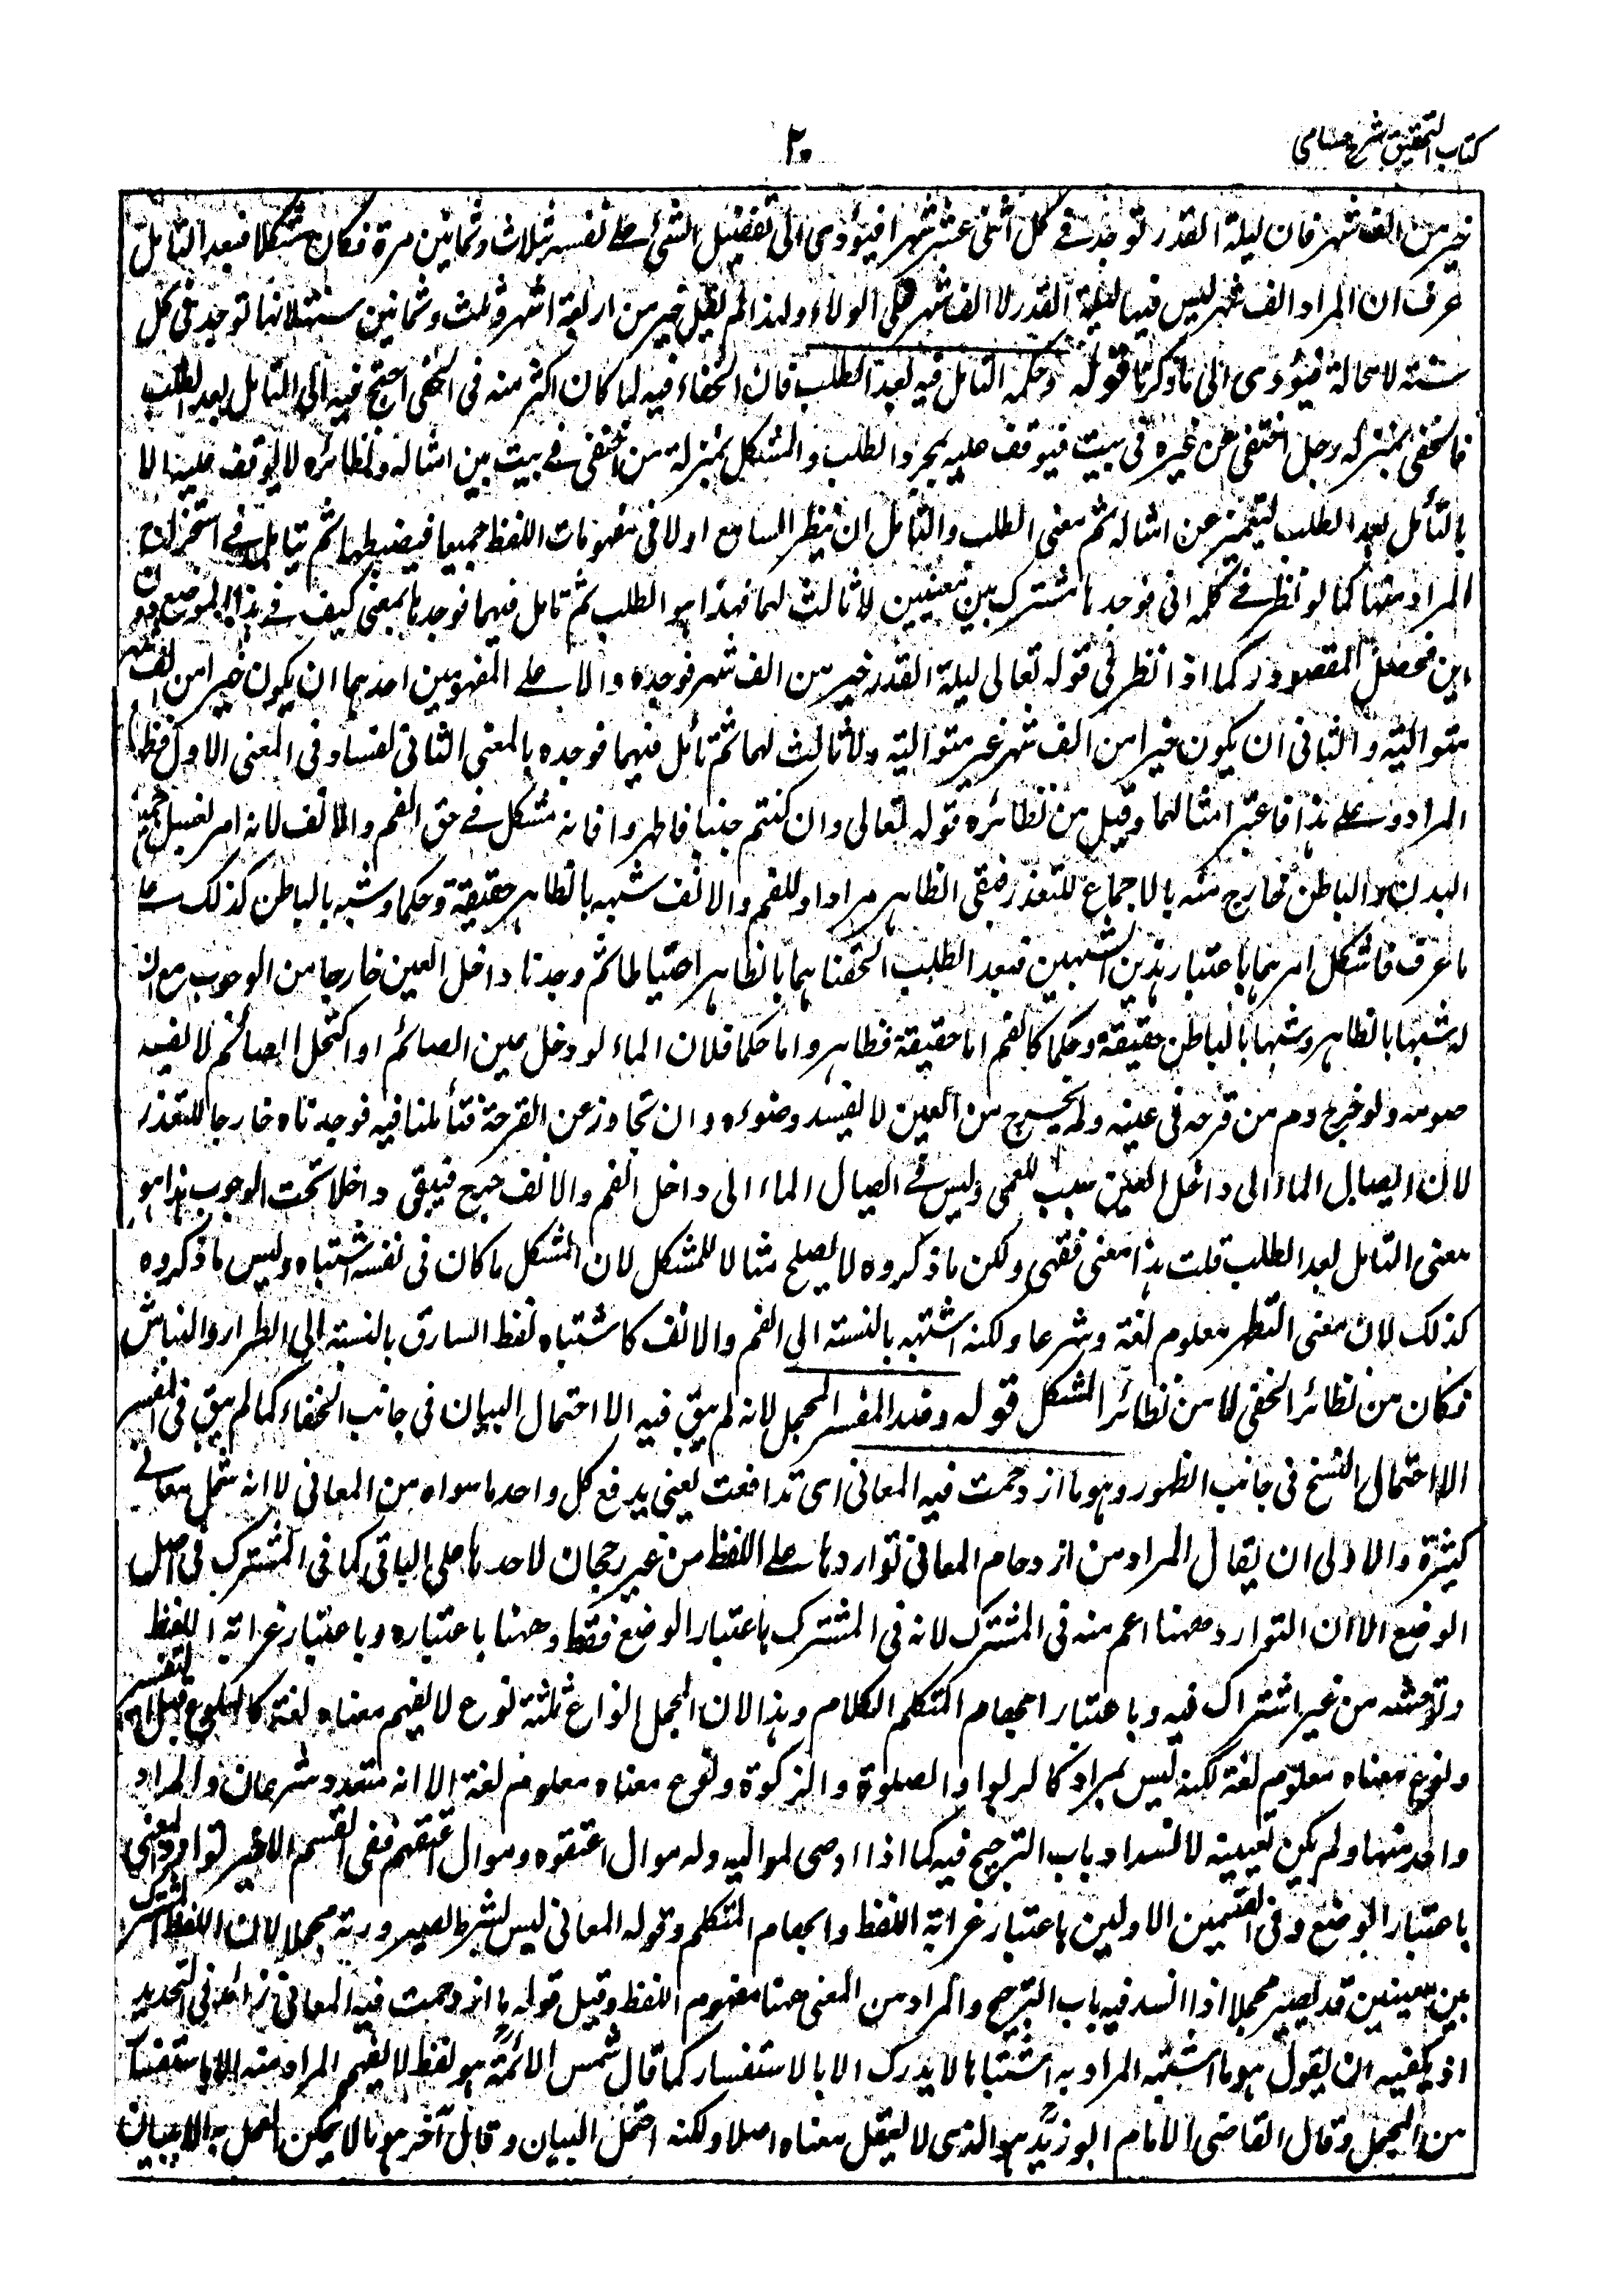 كتاب التحقيق شرح حسامى
٢٠
خير من الف شهر فان ليلة القدر توجد فى كل اثنى عشر شهرا فيؤدى الى تفضيل الشئ على نفسه ثلاث وثمانين مرة فكان مشكلا فبعد التامل
عرف ان المراد الف شهر ليس فيها ليلة القدر لا الف شهر على الولاء ولهذا لم يقل خير من اربعة اشهر وثلث وثمانين سنة لانها توجد فى كل
سنة لا محالة فيؤدى الى ما ذكرنا قوله وحكمه التامل فيه بعد الطلب فان الخفاء فيه لما كان اكثر منه فى الخفى احتيج فيه الى التامل بعد الطلب
فالخفى بمنزلة رجل اختفى عن غيره فى بيت فيوقف عليه بمجرد الطلب والمشكل بمنزلة من اختفى فى بيت بين امثاله ونظائره لا يوقف عليه الا
بالتأمل بعد الطلب ليتميز عن امثاله ثم معنى الطلب والتامل ان ينظر السامع اولا فى مفهومات اللفظ جميعا فيضبطها ثم يتامل فى استخراج
المراد منها كما لو نظر فى كلمة انى فوجدها مشترك بين معنيين لا ثالث لهما فهذا هو الطلب ثم تامل فيهما فوجدها بمعنى كيف فى هذا الموضع دون
اين فحصل المقصود وكما اذا نظر فى قوله تعالى ليلة القدر خير من الف شهر فوجده دالا على المفهومين احدهما ان يكون خيرا من الف شهر
متوالية والثانى ان يكون خيرا من الف شهر غير متوالية ولا ثالث لهما ثم تأمل فيهما فوجده بالمعنى الثانى لفساد فى المعنى الاول فظهر
المراد وعلى هذا فاعتبر امثالهما وقيل من نظائره قوله تعالى وان كنتم جنبا فاطهروا فانه مشكل فى حق الفم والانف لانه امر بغسل جميع
البدن والباطن خارج منه بالاجماع للتعذر فبقى الظاهر مرادا وللفم والانف شبه بالظاهر حقيقة وحكما وشبه بالباطن كذلك على
ما عرف فاشكل امرهما باعتبار هذين الشبهين فبعد الطلب الحقناهما بالظاهر احتياطا ثم وجدنا داخل العين خارجا من الوجوب مع ان
له شبها بالظاهر وشبها بالباطن حقيقة وحكما كالفم اما حقيقة فظاهر واما حكما فلان الماء لو دخل عين الصائم او اكتحل الصائم لا يفسد
صومه ولو خرج دم من قرحه فى عينه ولم يخرج من العين لا يفسد وضوءه وان تجاوز عن القرحة فتأملنا فيه فوجدناه خارجا للتعذر
لان ايصال الماء الى داخل العين سبب للعمى وليس فى ايصال الماء الى داخل الفم والانف حرج فيبقى داخلا تحت الوجوب هذا هو
معنى التامل بعد الطلب قلت هذا معنى فقهى ولكن ما ذكروه لا يصلح مثالا للمشكل لان المشكل ما كان فى نفسه اشتباه وليس ما ذكروه
كذلك لان معنى التطهر معلوم لغة وشرعا ولكنه اشتبه بالنسبة الى الفم والانف كاشتباه لفظ السارق بالنسبة الى الطرار والنباش
فكان من نظائر الخفى لا من نظائر المشكل قوله وضد المفسر المجمل لانه لم يبق فيه الا احتمال البيان فى جانب الخفاء كما لم يبق فى المفسر
الا احتمال النسخ فى جانب الظهور وهو ما ازدحمت فيه المعانى اى تدافعت يعنى يدفع كل واحد ما سواه من المعانى لا انه شمل معانى
كثيرة والاولى ان يقال المراد من ازدحام المعانى تواردها على اللفظ من غير رجحان لاحدها على الباقى كما فى المشترك فى اصل
الوضع الا ان التوارد ههنا اعم منه فى المشترك لانه فى المشترك باعتبار الوضع فقط وههنا باعتباره وباعتبار غرابة اللفظ
وتوحشه من غير اشتراك فيه وباعتبار ابهام المتكلم الكلام وهذا لان المجمل انواع ثلثة نوع لا يفهم معناه لغة كالهلوع قبل التفسير
ونوع معناه معلوم لغة لكنه ليس بمراد كالربوا والصلوة والزكوة ونوع معناه معلوم لغة الا انه متعدد شرعا والمراد
واحد منها ولم يكن تعيينه لانسداد باب الترجيح فيه كما اذا اوصى لمواليه وله موال اعتقوه وموال اعتقهم ففى القسم الاخير توارد المعنى
باعتبار الوضع وفى القسمين الاولين باعتبار غرابة اللفظ وابهام المتكلم وقوله المعانى ليس بشرط لصيرورته مجملا لان اللفظ المشترك
بين معنيين قد يصير مجملا اذا انسد فيه باب الترجيح والمراد من المعنى ههنا مفهوم اللفظ وقيل قوله ما ازدحمت فيه المعانى زائد فى التحديد
اذ يكفيه ان يقول هو ما اشتبه المراد به اشتباها لا يدرك الا بالاستفسار كما قال شمس الائمة هو لفظ لا يفهم المراد منه الا باستفسار
من المجمل وقال القاضى الامام ابو زيد هو الذى لا يعقل معناه اصلا ولكنه احتمل البيان وقال آخر هو ما لا يمكن العمل به الا ببيان